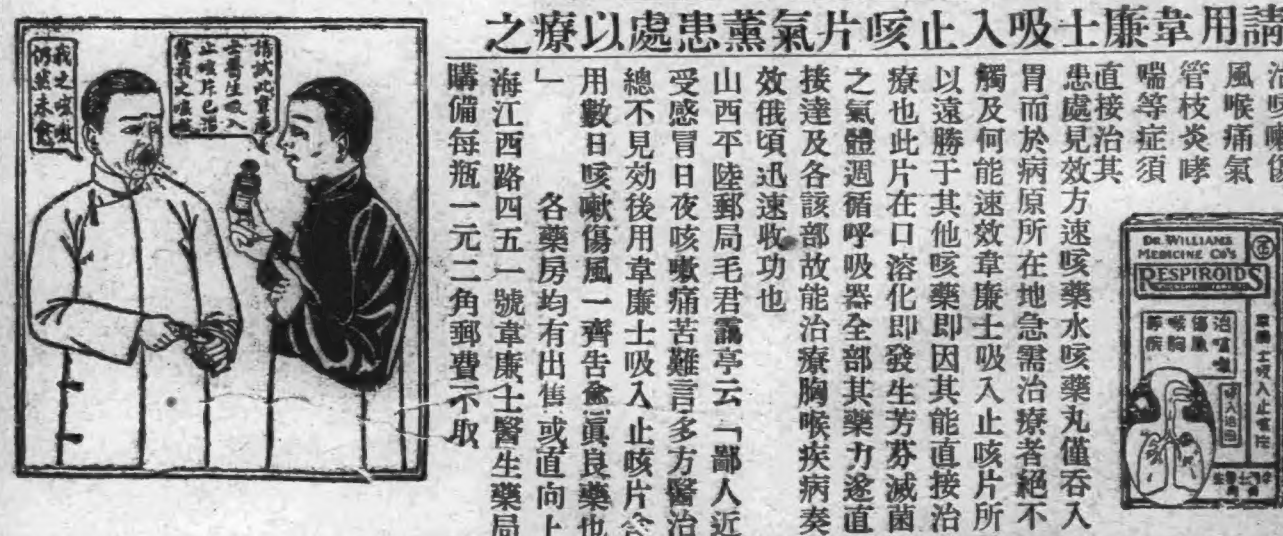 請用韋廉士吸入止咳片氣薰患處以療之
風喉痛氣
管枝炎哮
喘等症須
直接治其
患處見效方速咳藥水咳藥丸僅吞入
胃而於病原所在地急需治療者絕不
觸及何能速效韋廉士吸入止咳片所
以遠勝于其他咳藥即因其能直接治
療也此片在口溶化即發生芳芬滅菌
之氣體週循呼吸器全部其藥力遂直
接達及各該部故能治療胸喉疾病奏
效俄頃迅速收功也
山西平陸郵局毛君靄亭云「鄙人近
受感冒日夜咳嗽痛苦難言多方醫治
總不見効後用韋廉士吸入止咳片含
用數日咳嗽傷風一齊告愈眞良藥也
」 各藥房均有出售或直向上
海江西路四五一號韋廉士醫生藥局
購備每瓶一元二角郵費不取
DR. WILLIAMS
MEDICINE CO'S
RESPIROIDS
治咳嗽
傷風
喉胸
韋廉士吸入止咳片
請試此韋廉
士醫生吸入
止咳片已治
愈我之咳
我之咳嗽
仍然未愈